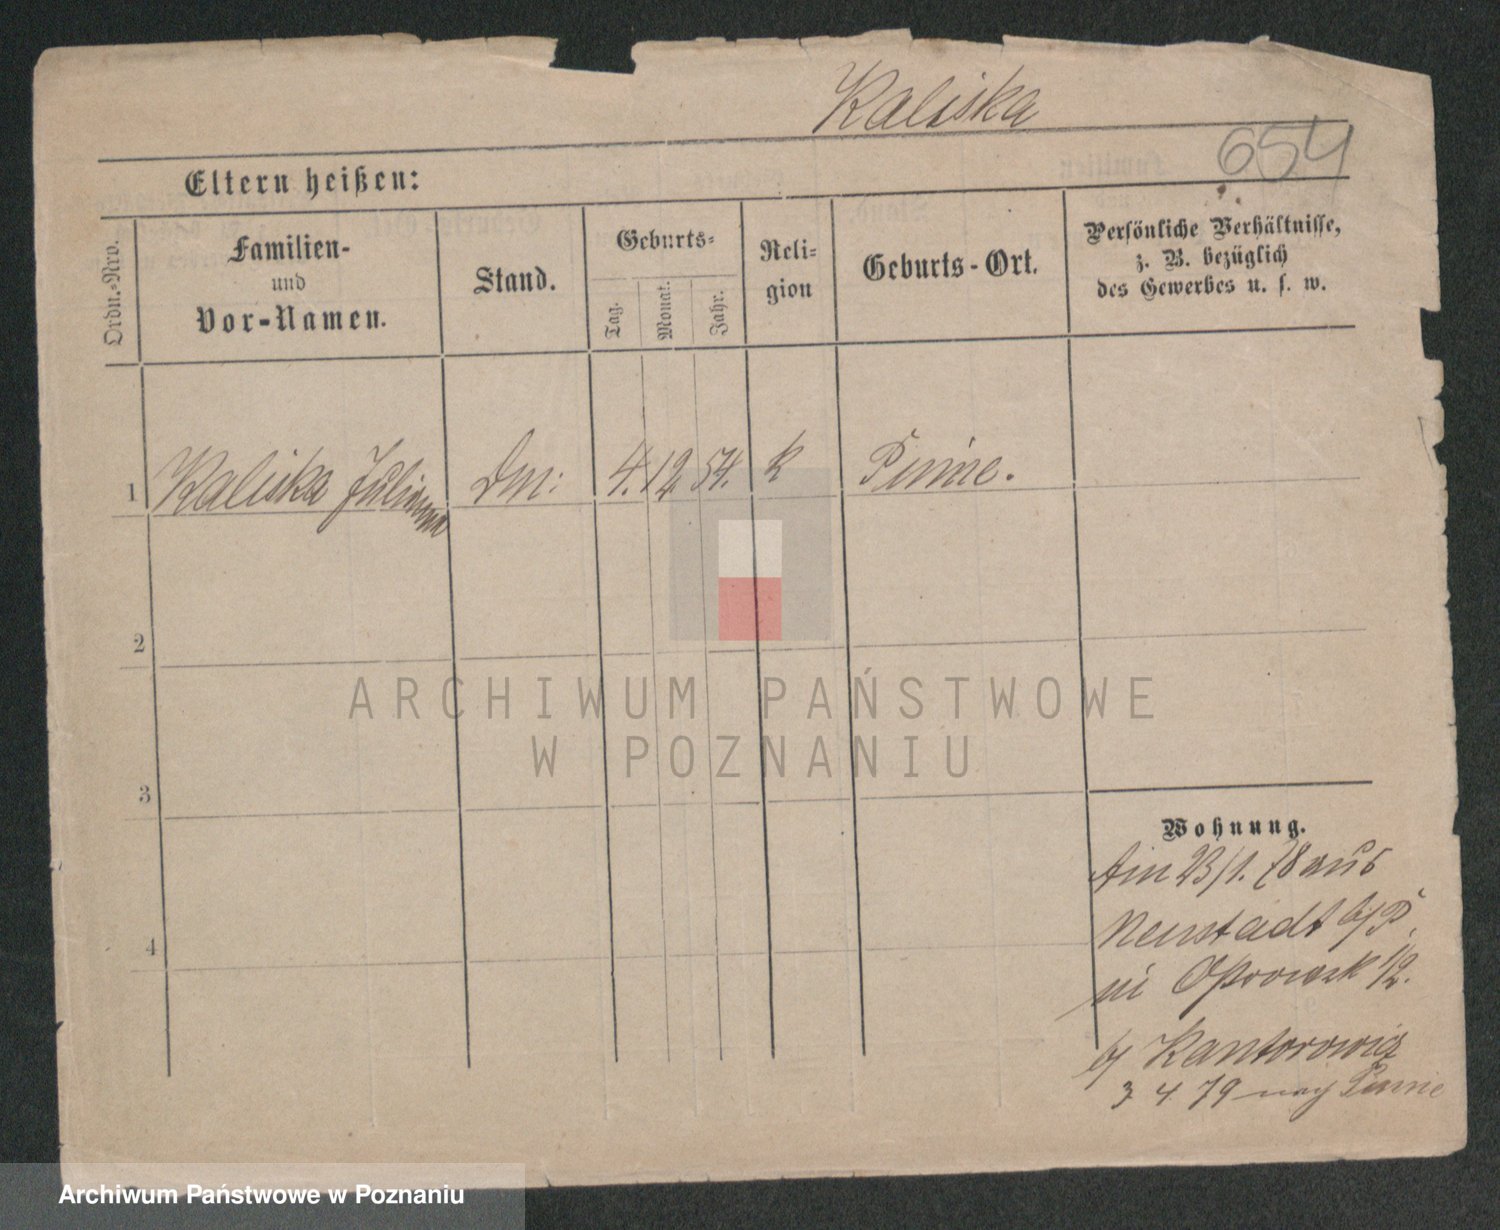 Kaliska
654
Eltern heißen:
Ordn.-Nro.
Familien-
und
Vor-Namen.
Stand.
Geburts-
Tag.
Monat.
Jahr.
Reli-
gion
Geburts-Ort.
Persönliche Verhältnisse,
z. B. bezüglich
des Gewerbes u. s. w.
1 Kaliska Julianna 4. 12 54. k Pinne.
2
3
4
Wohnung.
23/1. 78 aus
Neustadt b/P.
1/2.
b/ Kantorowicz
3 4 79 nach Pinne
ARCHIWUM PAŃSTWOWE
W POZNANIU
Archiwum Państwowe w Poznaniu